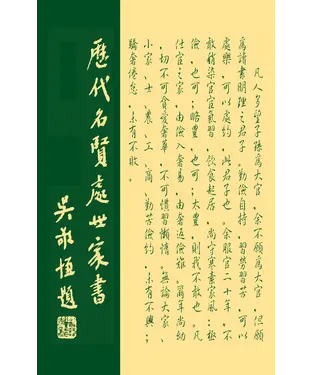 凡人多望子孫為大官,余不願為大官,但願
為讀書明理之君子。勤儉自持,習勞習苦,可以
處樂,可以處約,此君子也。余服官二十年,不
敢稍染官宦氣習,飲食起居,尚守寒素家風;極
儉,也可;略豐,也可;太豐,則我不敢也。凡
仕宦之家,由儉入奢易,由奢返儉難。爾年尚幼
,切不可貪愛奢華,不可慣習懶惰。無論大家、
小家、士、農、工、商,勤苦儉約,未有不興;
驕奢倦怠,未有不敗。
歷代名賢處世家書
吳敬恆題